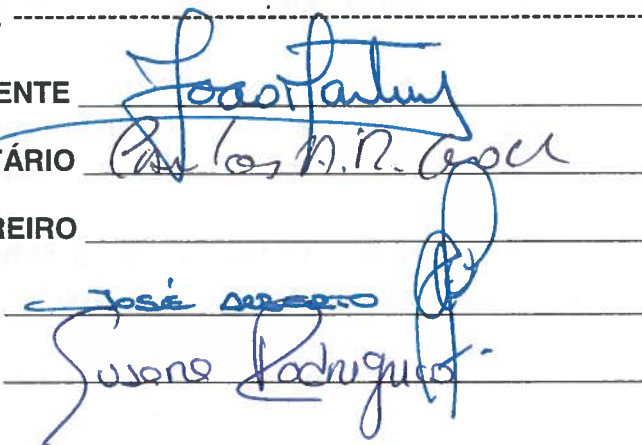 ENTE João Martins
TÁRIO Carlos
REIRO
JOSÉ ALBERTO
Susana Rodrigues